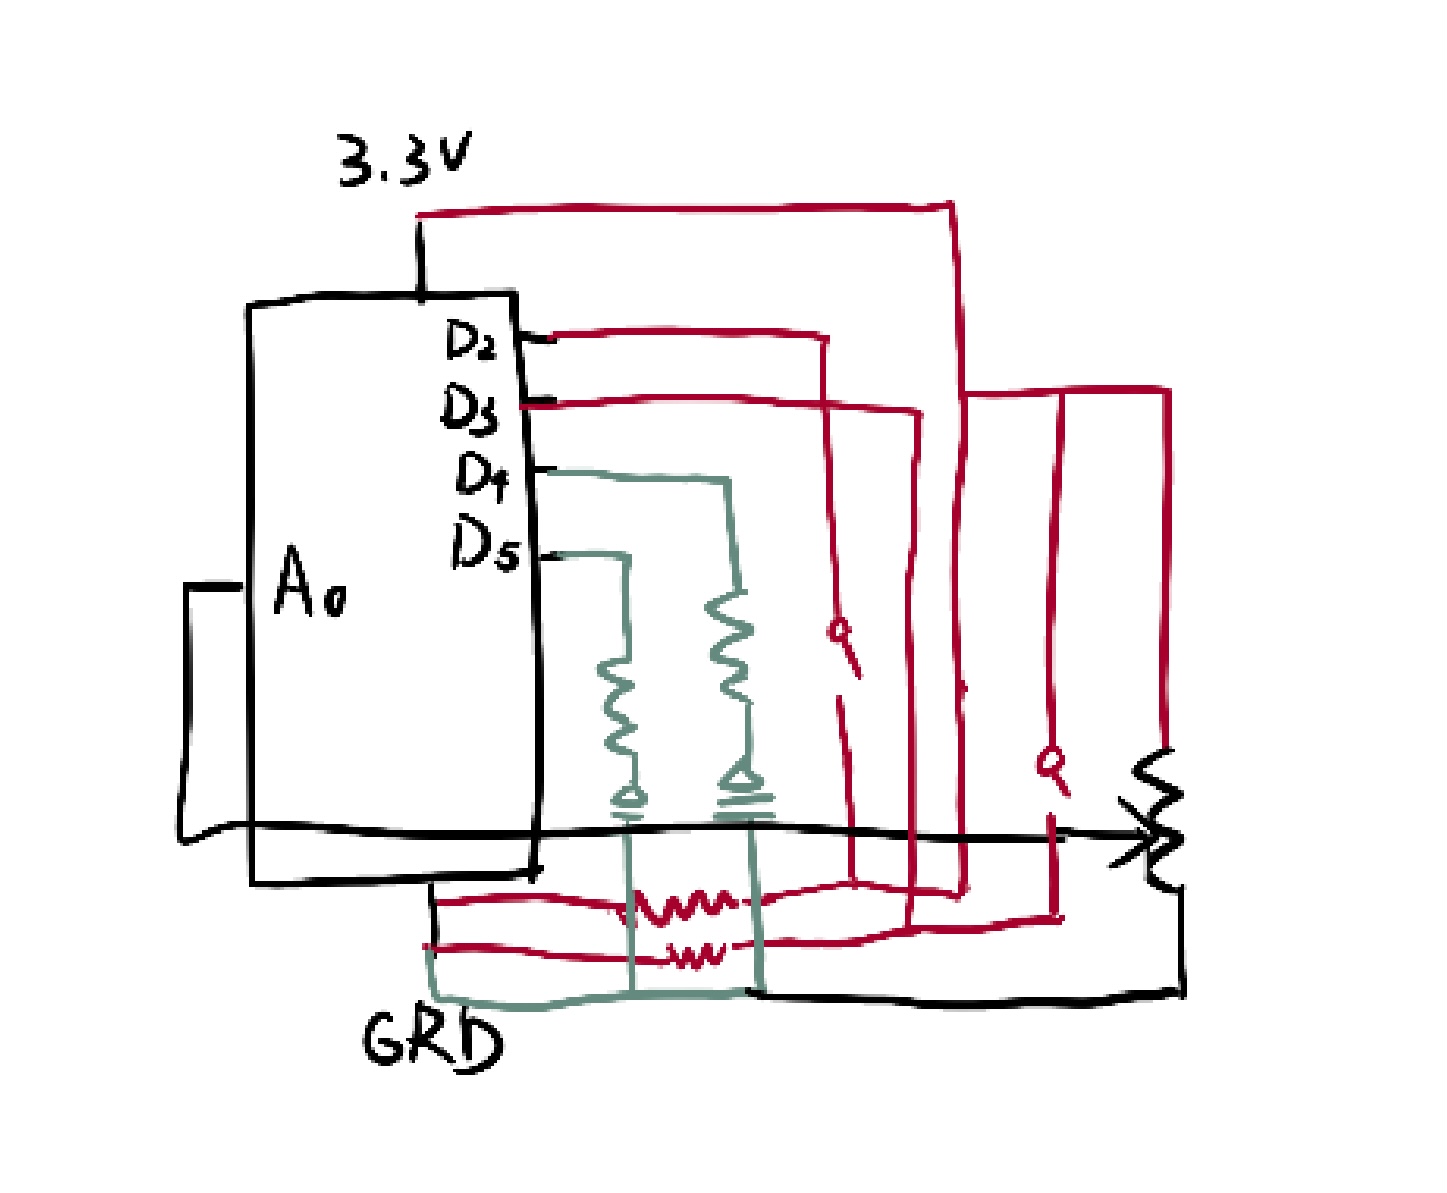 3.3V
D2
D3
D4
D5
A0
GRD